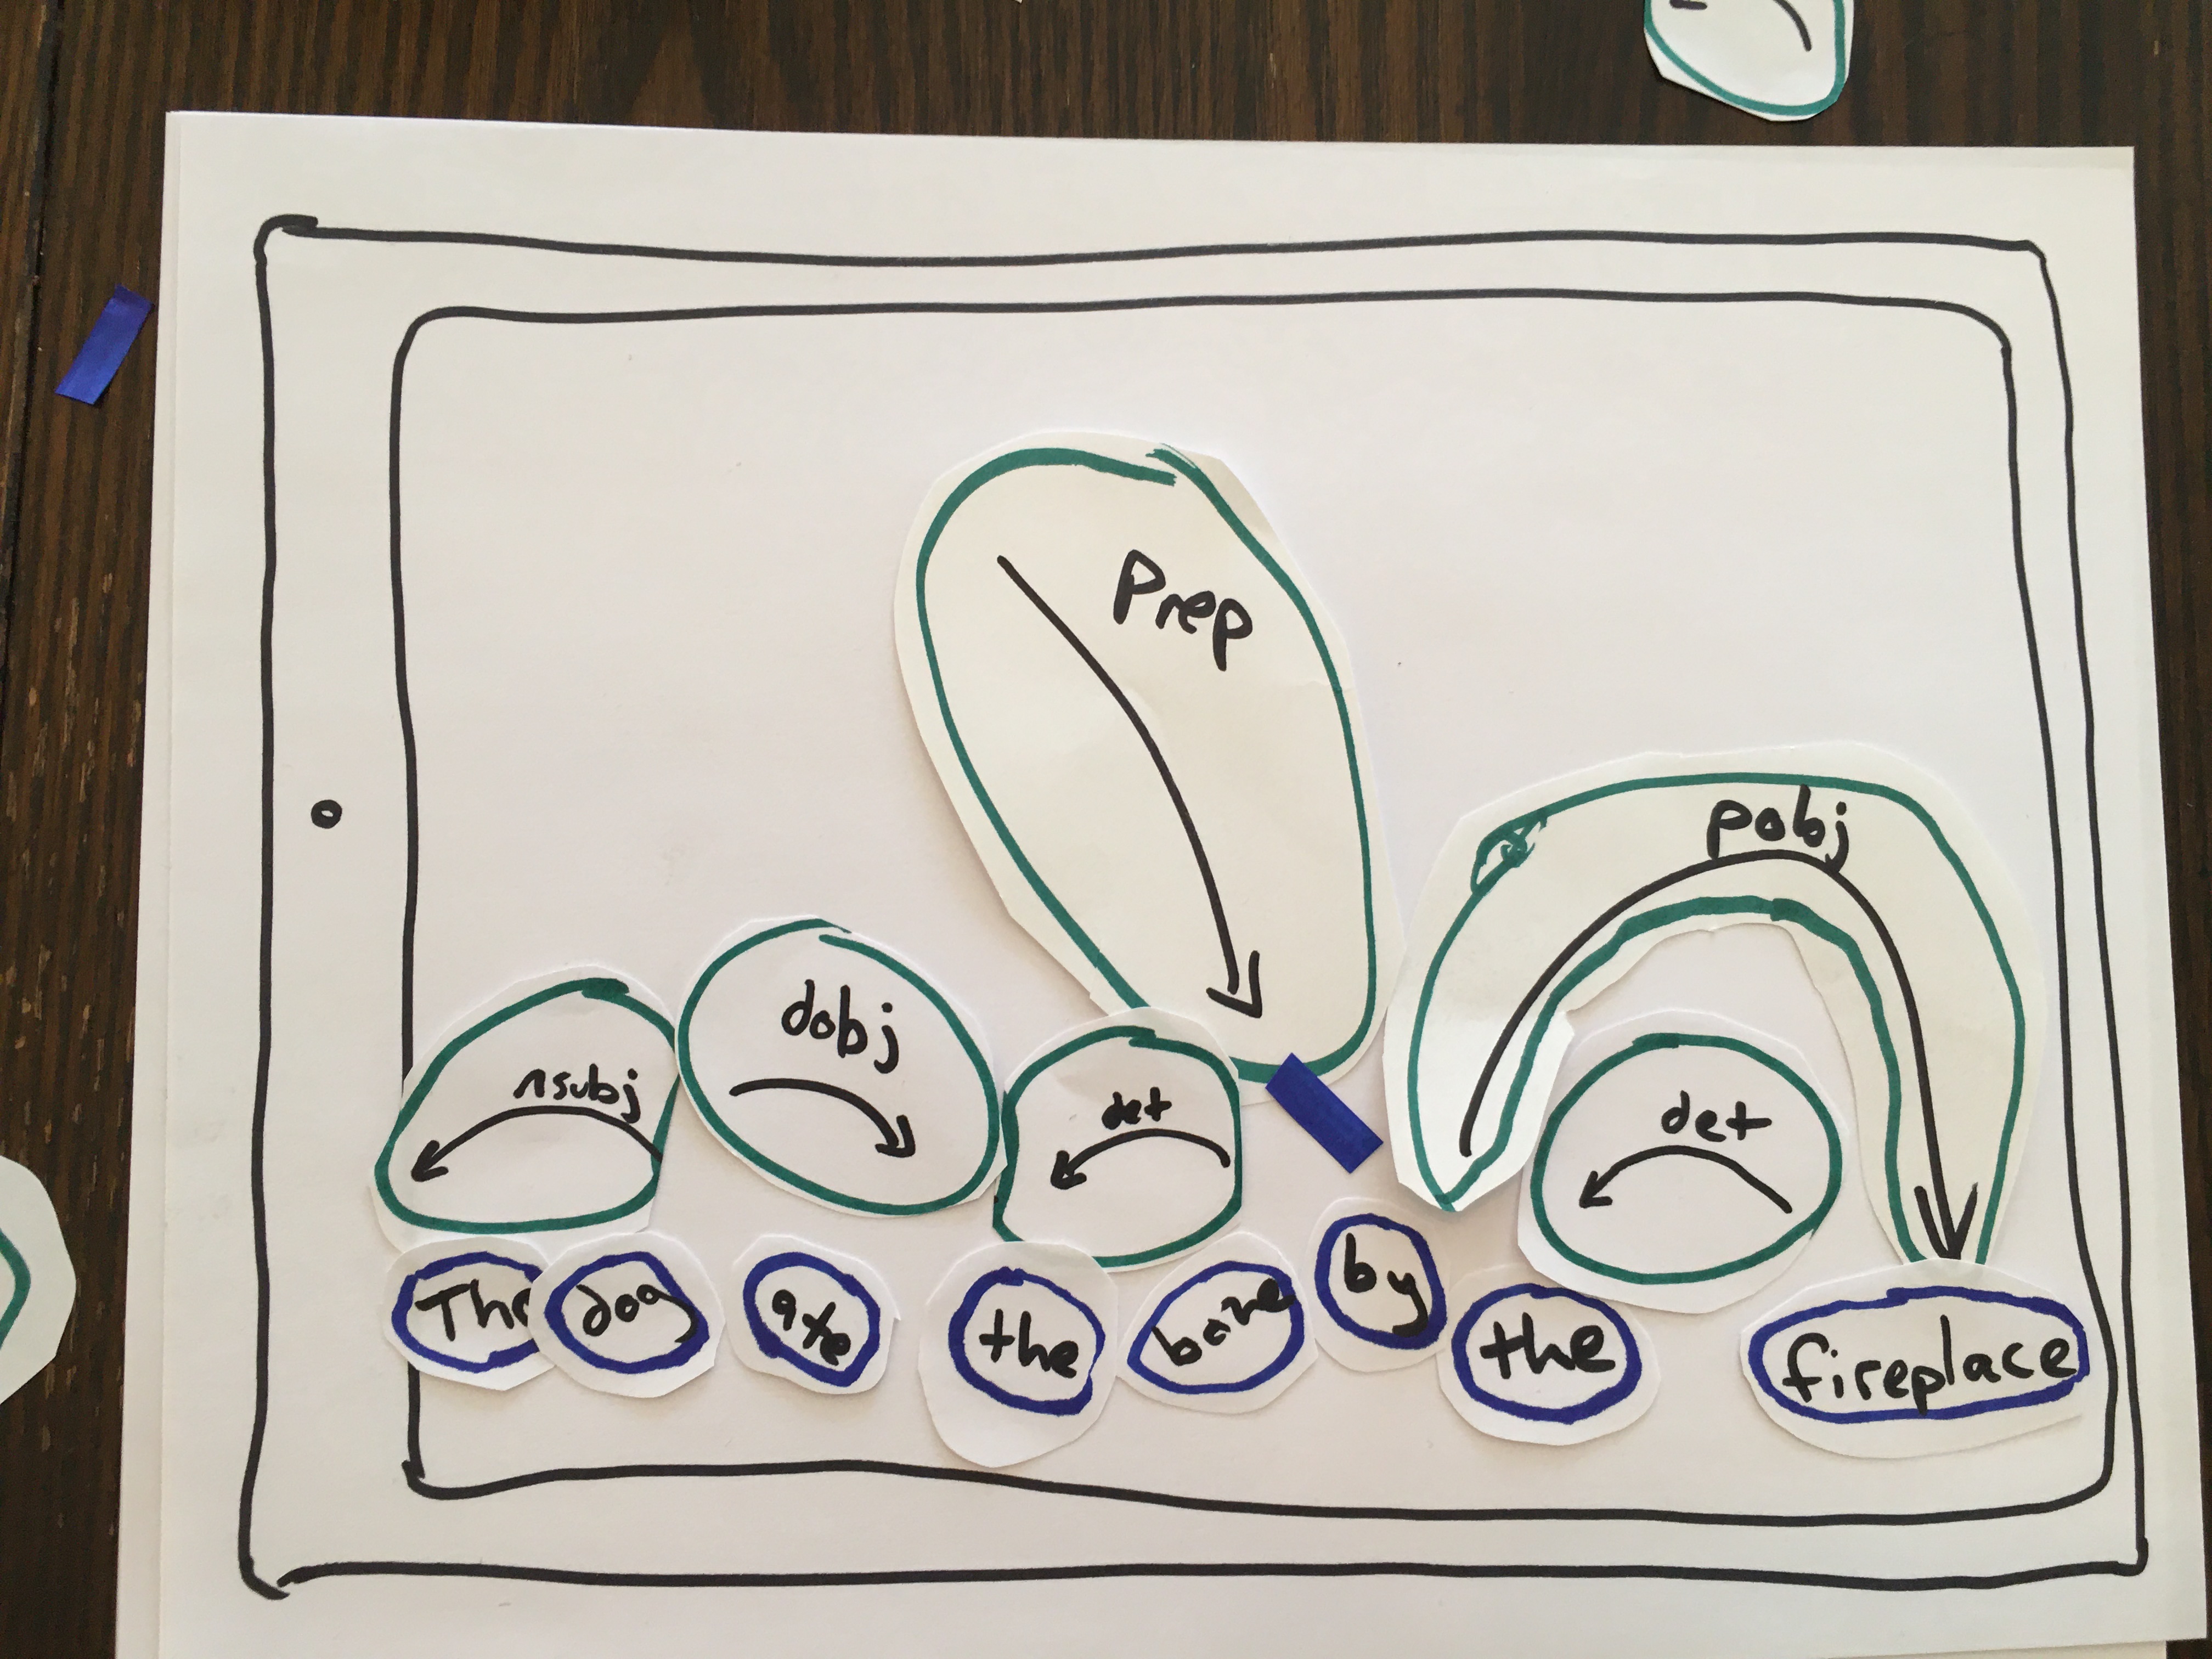 Prep
pobj
dobj
nsubj
det
det
The dog ate the bone by the fireplace